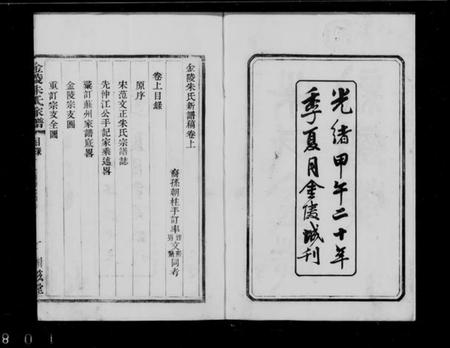 光緒甲午二十年
季夏月金陵城刊
金陵朱氏新譜稿卷上
裔孫朝柱手訂率 文 同考
卷上目錄
原序
宋范文正朱氏宗譜誌
先仲江公手記家乘述畧
彙訂蘇州家譜底畧
金陵宗支圖
重訂宗支全圖
金陵朱氏家譜 目錄
801